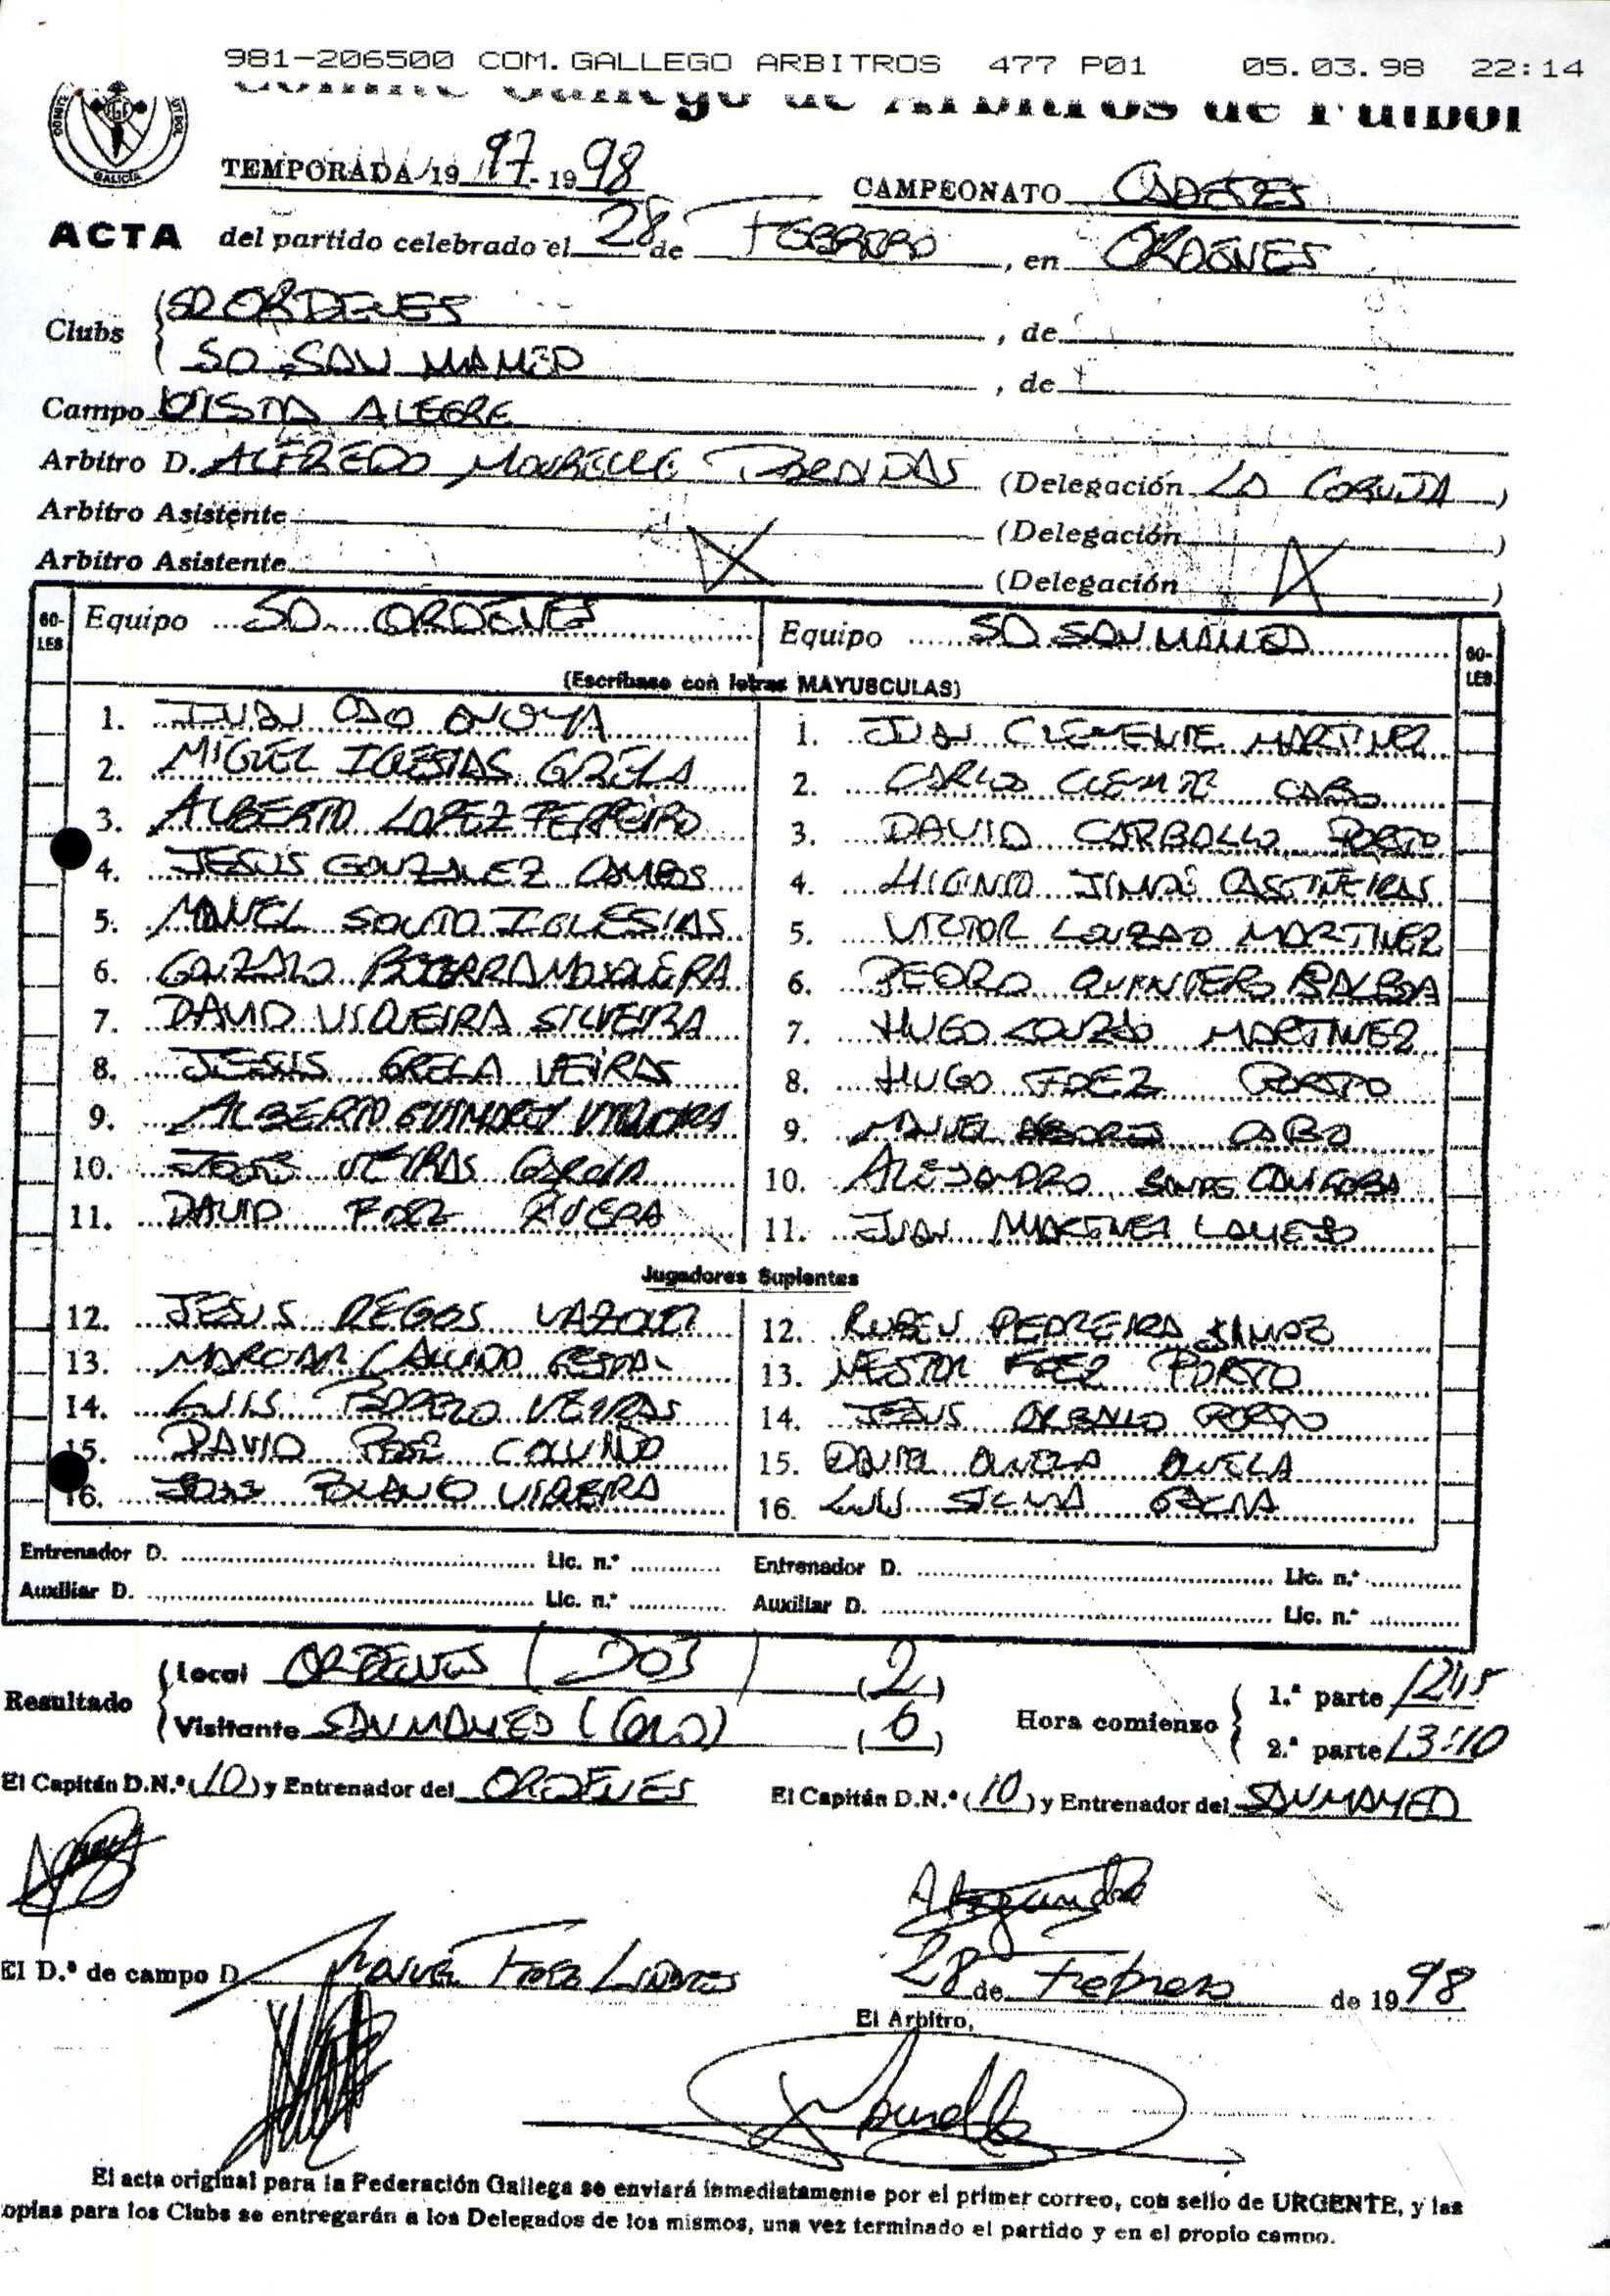 981-206500 COM.GALLEGO ARBITROS 477 P01 05.03.98 22:14
Comité Gallego de Arbitros de Fútbol
GALICIA
TEMPORADA 1997-1998 CAMPEONATO CADETES
ACTA del partido celebrado el 28 de FEBRERO, en ORDENES
Clubs SD ORDENES, de
SD SAN MAMED, de
Campo VISTA ALEGRE
Arbitro D. ALFREDO MOURELLE (Delegación LA CORUÑA)
Arbitro Asistente (Delegación )
Arbitro Asistente (Delegación )
GO-LES Equipo SD ORDENES Equipo SD SAN MAMED GO-LES
(Escríbase con letras MAYUSCULAS)
1. JUAN CAO ANOYA 1. JUAN CLEMENTE MARTINEZ
2. MIGUEL IGLESIAS GRELA 2. CARLOS CLEMTE CABO
3. ALBERTO LOPEZ FERREIRO 3. DAVID CARBALLO PORTO
4. JESUS GONZALEZ CAMPOS 4. HIGINIO CASTIÑEIRAS
5. MANUEL SOUTO IGLESIAS 5. VICTOR LOUZAO MARTINEZ
6. GONZALO BECERRA MOSQUERA 6. PEDRO BALBOA
7. DAVID VIQUEIRA SILVEIRA 7. HUGO LOUZAO MARTINEZ
8. JESUS GRELA VEIRAS 8. HUGO FDEZ PORTO
9. ALBERTO 9. MANUEL CABO
10. JOSE VEIRAS GARCIA 10. ALEJANDRO
11. DAVID FDEZ RIVERA 11. JUAN MARTINEZ
Jugadores Suplentes
12. JESUS REGOS VAZQUEZ 12. RUBEN PEDREIRA
13. 13. NESTOR FDEZ PORTO
14. LUIS VEIRAS 14. JESUS CARBALLO PORTO
15. DAVID 15. DANIEL
16. JOSE BLANCO VIQUEIRA 16. LUIS
Entrenador D. Lic. n.º Entrenador D. Lic. n.º
Auxiliar D. Lic. n.º Auxiliar D. Lic. n.º
Resultado Local ORDENES (DOS) (2) Hora comienzo 1.ª parte 12:15
Visitante SAN MAMED (CERO) (0) 2.ª parte 13:10
El Capitán D.N.º (10) y Entrenador del ORDENES El Capitán D.N.º (10) y Entrenador del SAN MAMED
Alejandro
El D.º de campo D. MANUEL FDEZ LINARES 28 de Febrero de 1998
El Arbitro,
Mourelle
El acta original para la Federación Gallega se enviará inmediatamente por el primer correo, con sello de URGENTE, y las
opias para los Clubs se entregarán a los Delegados de los mismos, una vez terminado el partido y en el propio campo.